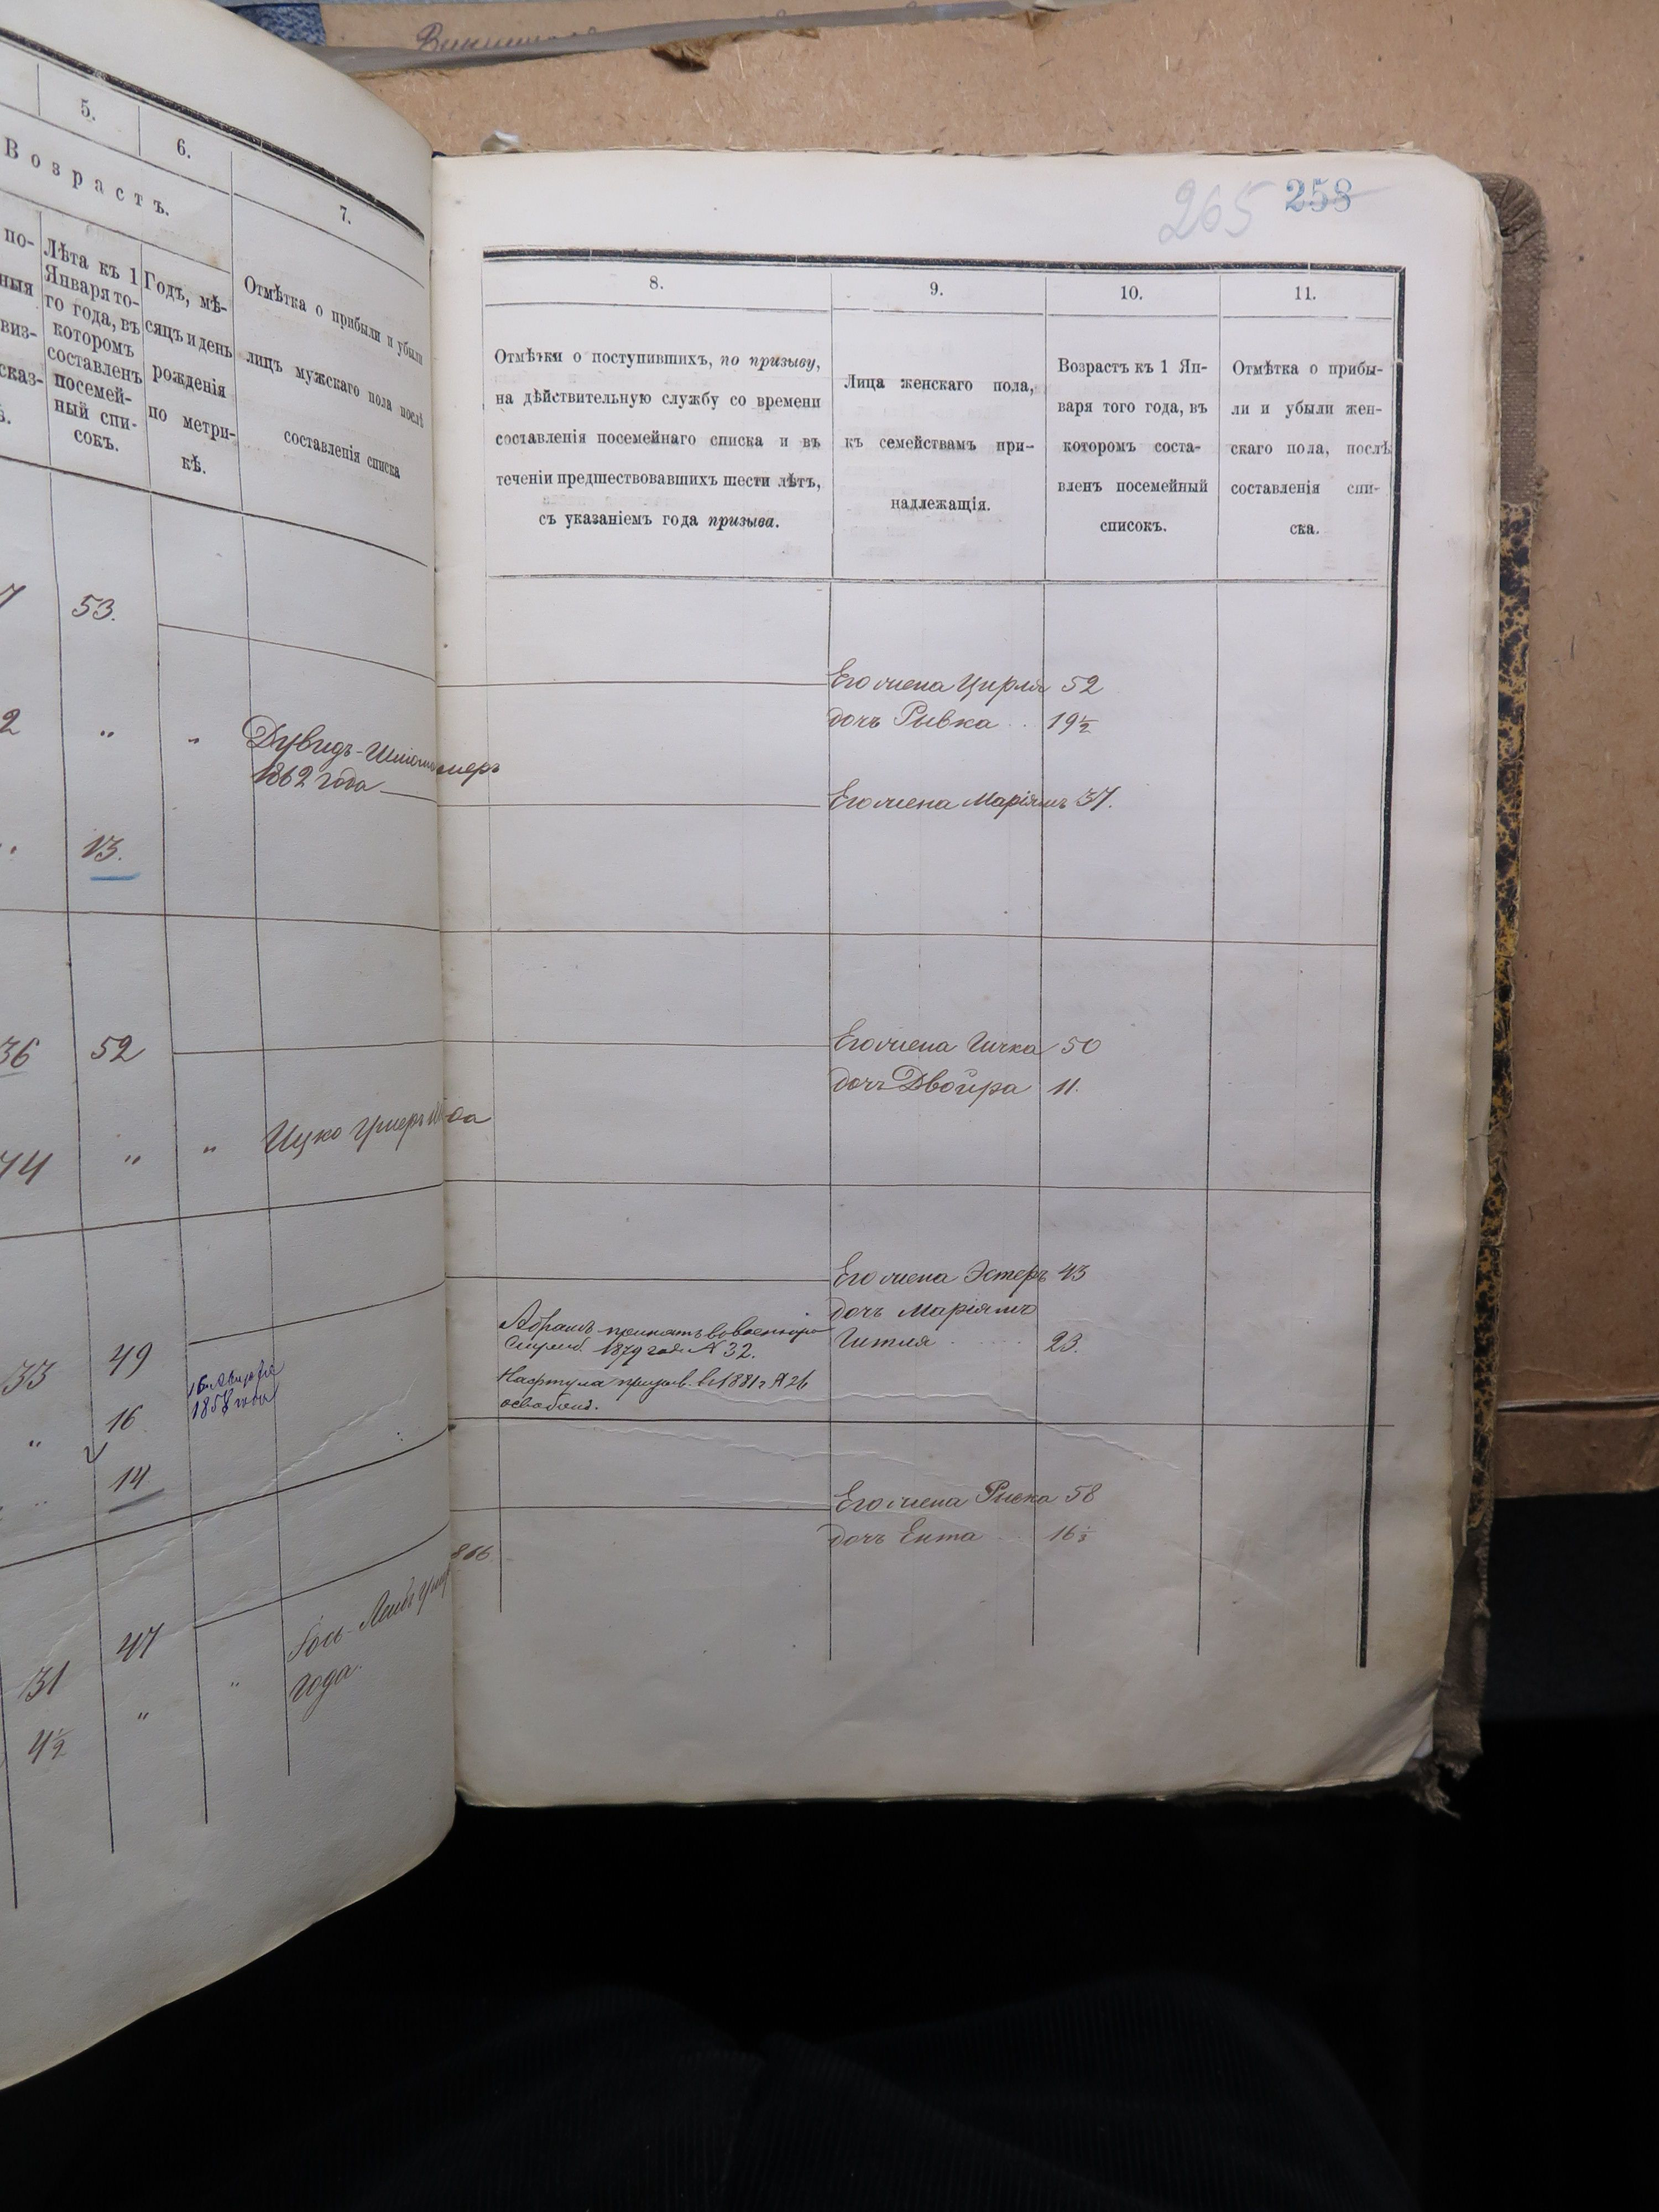 5.
6.
7.
Возрастъ.
по-
ныя
виз-
сказ-
Лѣта къ 1
Января то-
го года, въ
которомъ
составленъ
посемей-
ный спи-
сокъ.
Годъ, мѣ-
сяцъ и день
рожденія
по метри-
кѣ.
Отмѣтка о прибыли и убыли
лицъ мужскаго пола послѣ
составленія списка
7
53.
2
"
"
Дувидъ-Шліома умеръ
1862 года
13.
36
52
44
"
"
Ицко Умеръ
33
49
1858 года
"
16
14
47
31
"
"
года.
4½
265 258
8.
9.
10.
11.
Отмѣтки о поступившихъ, по призыву,
на дѣйствительную службу со времени
составленія посемейнаго списка и въ
теченіи предшествовавшихъ шести лѣтъ,
съ указаніемъ года призыва.
Лица женскаго пола,
къ семействамъ при-
надлежащія.
Возрастъ къ 1 Ян-
варя того года, въ
которомъ соста-
вленъ посемейный
списокъ.
Отмѣтка о прибы-
ли и убыли жен-
скаго пола, послѣ
составленія спи-
ска.
Его жена Цирля 52
дочь Рывка 19½
Его жена Маріямъ 37.
Его жена 50
дочь Двойра 11.
Его жена Эстеръ 43
дочь Маріямъ
Гитля 23.
Абрамъ принятъ
1879 года № 32.
Нафтула призыв. въ 1881 г № 26
освобожд.
Его жена 58
дочь Ента 16⅓
866